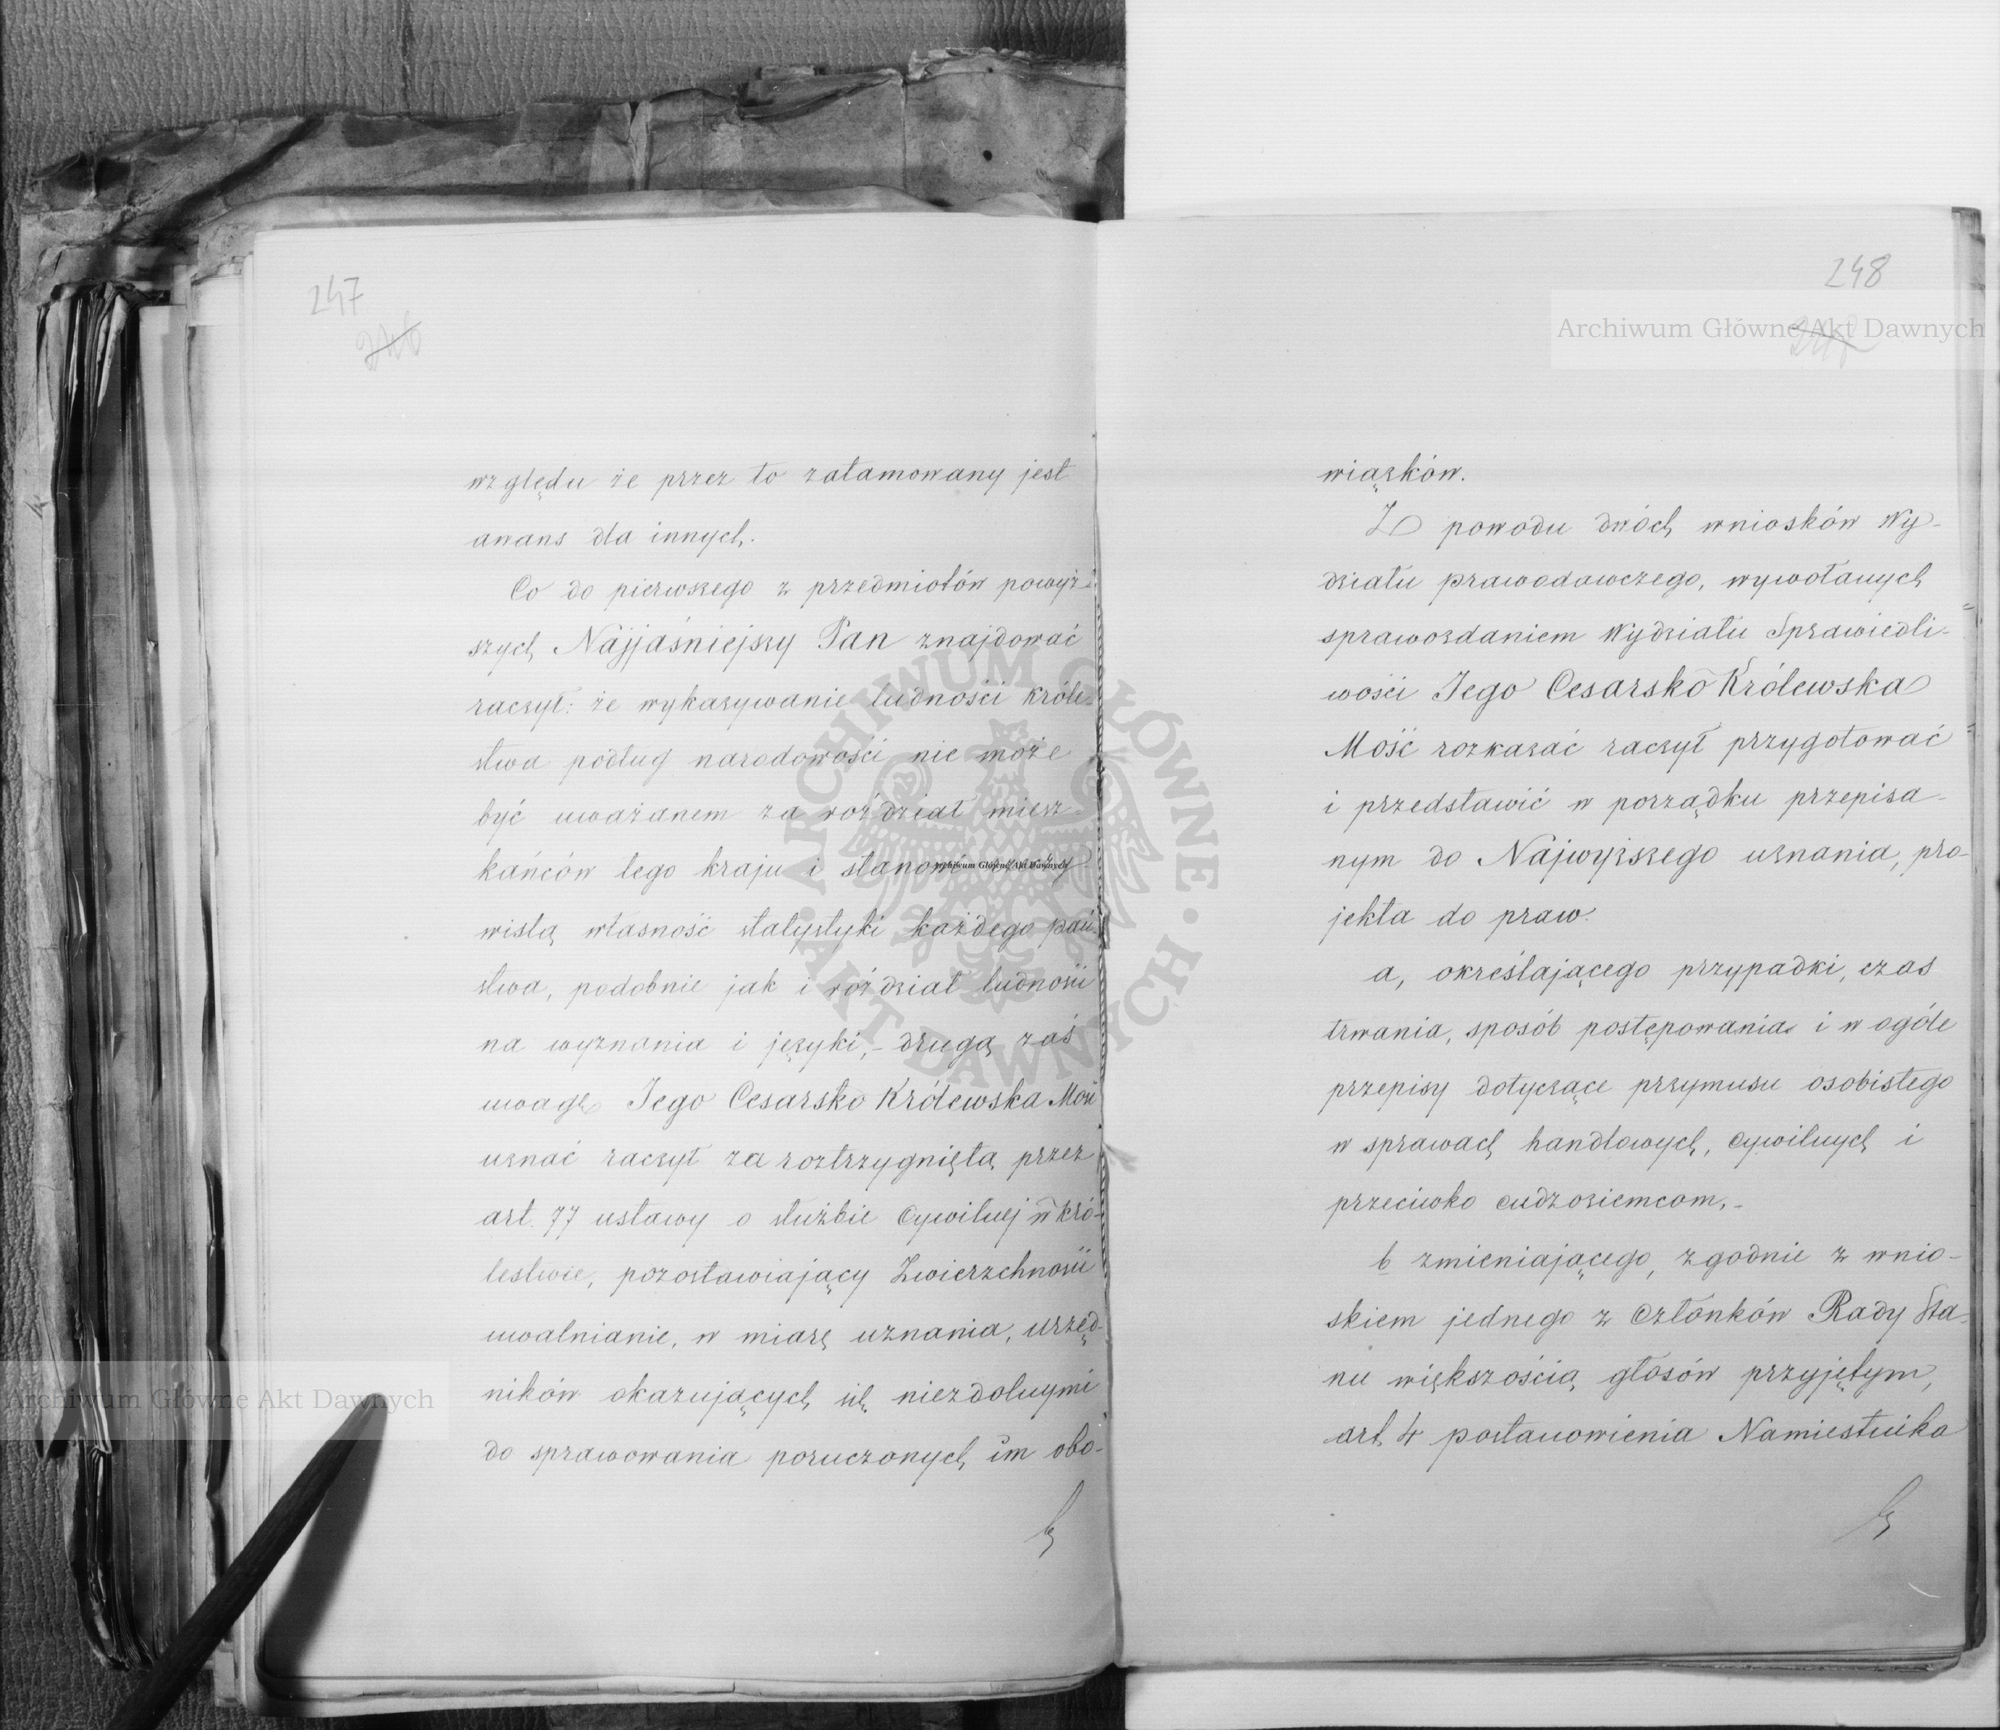 247
246
względu że przez to zatamowany jest
awans dla innych.
Co do pierwszego z przedmiotów powyż-
szych Najjaśniejszy Pan znajdować
raczył: że wykazywanie ludności króle-
stwa podług narodowości nie może
być uważanem za roździał miesz-
kańców tego kraju i stanowi
wistą własność statystyki każdego pań-
stwa, podobnie jak i roździał ludności
na wyznania i języki,- drugą zaś
uwagę Jego Cesarsko Królewska Mość
uznać raczył za roztrzygniętą przez
art. 77 ustawy o służbie cywilnej w kró-
lestwie, pozostawiający Zwierzchności
uwalnianie, w miarę uznania, urzęd-
ników okazujących się niezdolnymi
do sprawowania poruczonych im obo-
248
wiązków.
Z powodu dwóch wniosków Wy-
działu prawodawczego, wywołanych
sprawozdaniem Wydziału Sprawiedli-
wości Jego Cesarsko Królewska
Mość rozkazać raczył przygotować
i przedstawić w porządku przepisa-
nym do Najwyższego uznania, pro-
jekta do praw.
a, określającego przypadki, czas
trwania, sposób postępowania i w ogóle
przepisy dotyczące przymusu osobistego
w sprawach handlowych, cywilnych i
przeciwko cudzoziemcom,-
b zmieniającego, zgodnie z wnio-
skiem jednego z Członków Rady Sta-
nu większością głosów przyjętym,
art. 4 postanowienia Namiestnika
Archiwum Główne Akt Dawnych
Archiwum Główne Akt Dawnych
Archiwum Główne Akt Dawnych
ARCHIWUM GŁÓWNE · AKT DAWNYCH ·